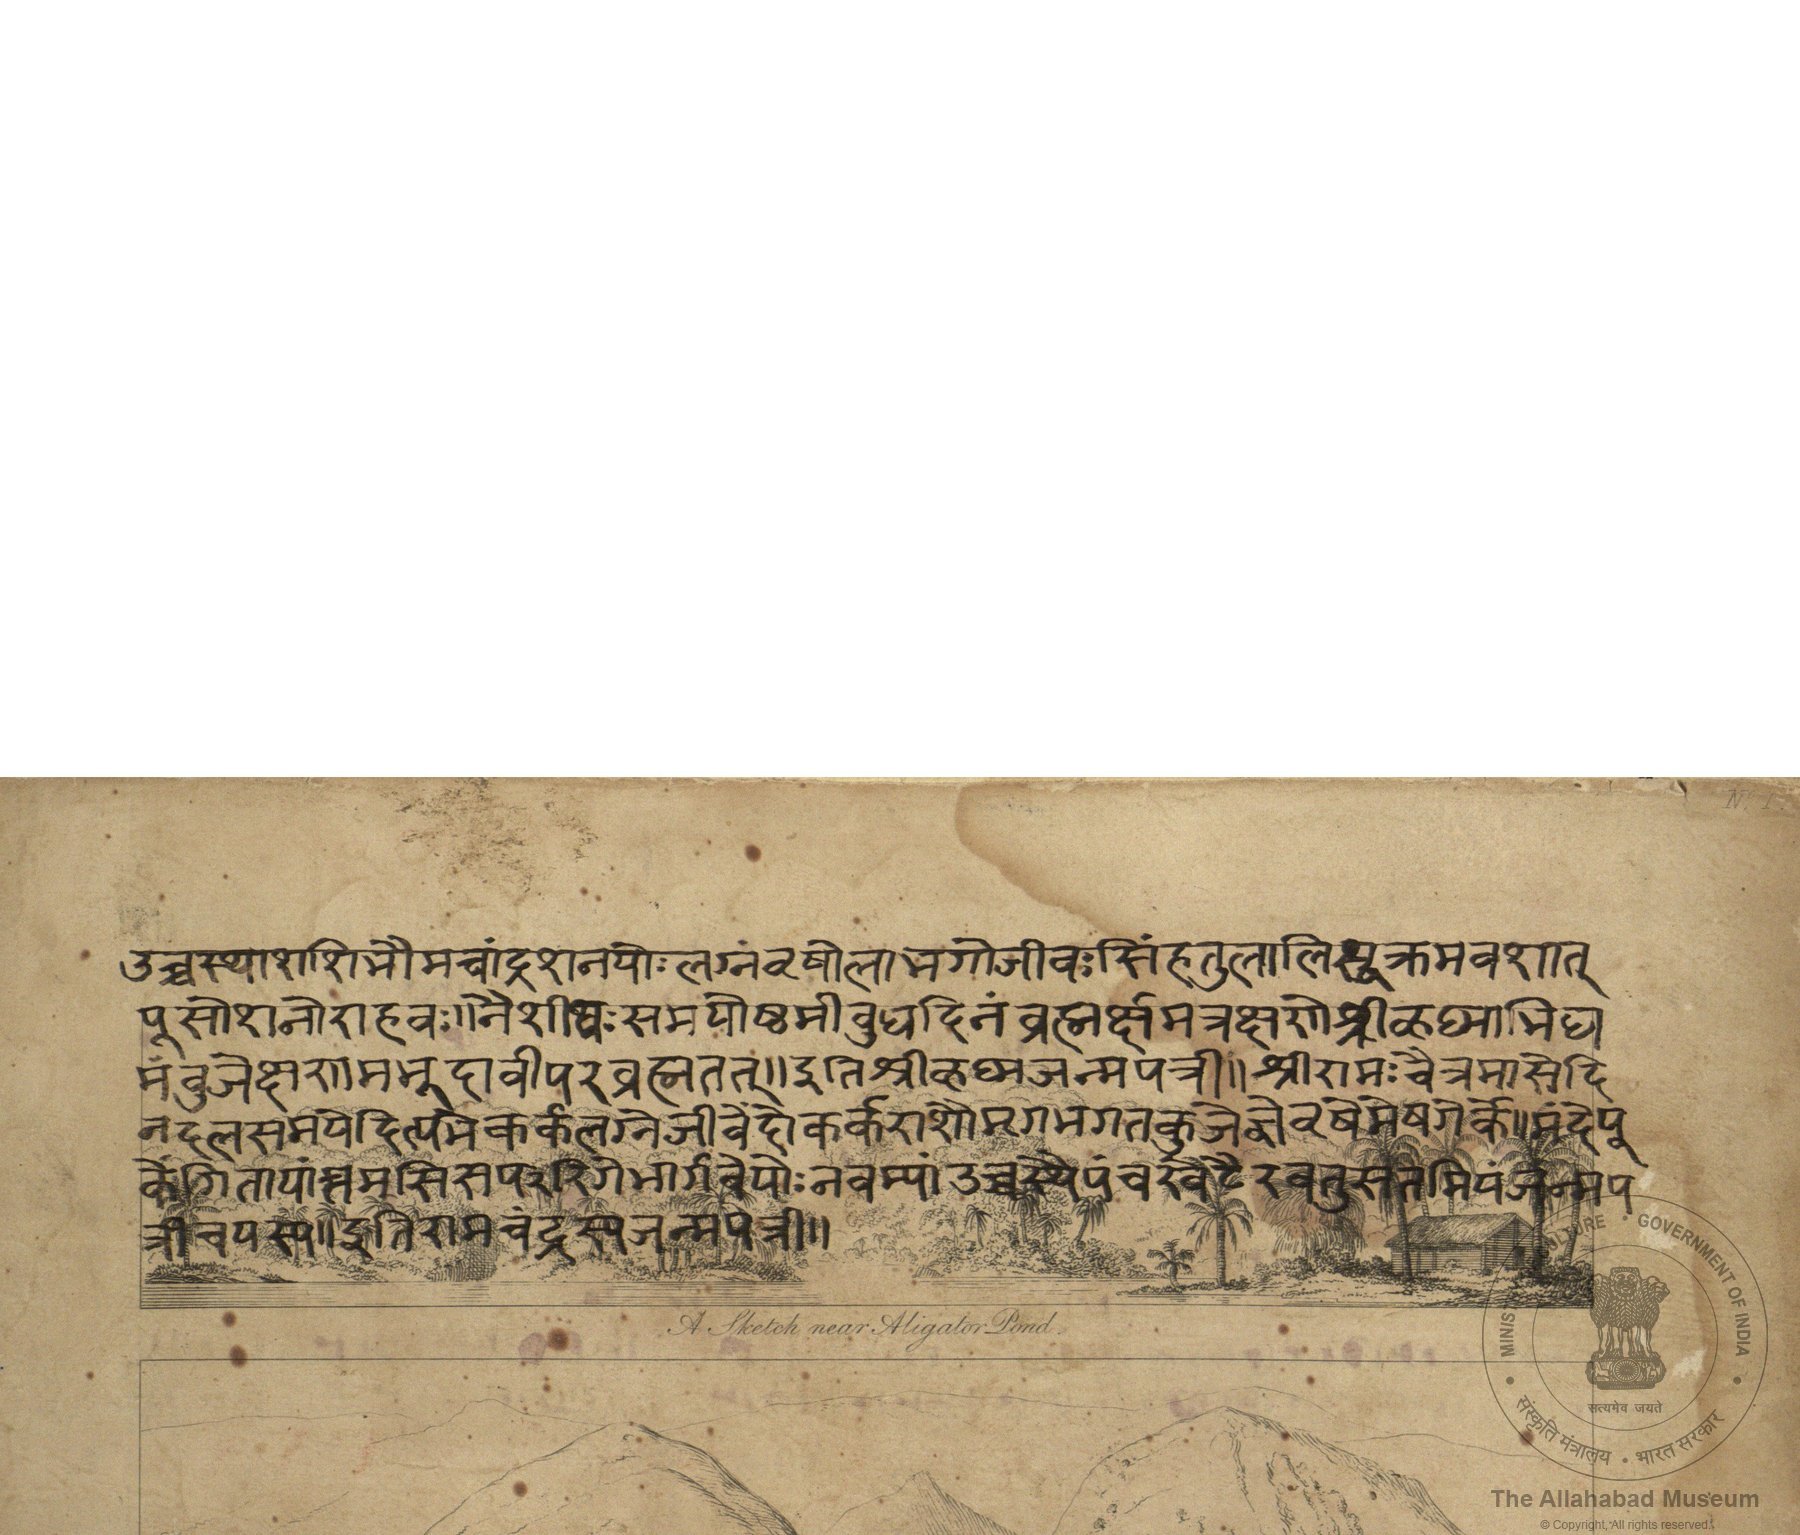 No. 1.
उच्चस्थाशशिभौमचांद्रशनयोःलग्नंवृषोलाभगोजीवःसिंहतुलालिषुक्रमवशात्
पूसोशनोराहवः॥नैशीथःसमयोष्टमीवुधदिनंव्रह्मर्क्षमत्रक्षणेश्रीकृष्णाभिधा
मंवुजेक्षणमभूदावीपरव्रह्मतत्॥इतिश्रीकृष्णजन्मपत्री॥श्रीरामःचैत्रमासेदि
नदलसमयेदित्यभेकर्कलग्नेजीवेंदोकर्कराशौमृगभगतकुजेज्ञेवृषेमेषगेर्के॥मंदेपू
केंगितायांझमसिसपररिगेभार्गवेयोःनवम्यांउच्चस्थैपंचखेटैरवतुसतमियंजन्मप
त्रीचयस्य॥इतिरामचंद्रस्यजन्मपत्री॥
A Sketch near Aligator Pond.
MINISTRY OF CULTURE • GOVERNMENT OF INDIA
सत्यमेव जयते
संस्कृति मंत्रालय • भारत सरकार
The Allahabad Museum
© Copyright, All rights reserved.